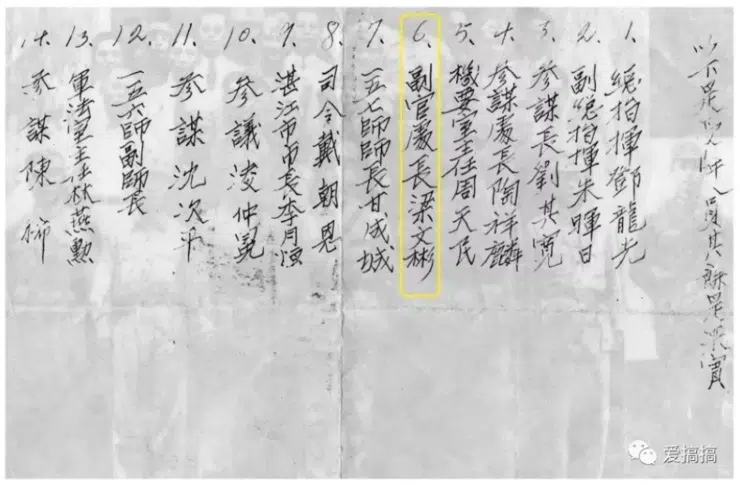 以下是
1. 總指揮鄧龍光
2. 副總指揮朱暉日
3. 參謀長劉其寬
4. 參謀處長陶祥麟
5. 機要室主任周天民
6. 副官處長梁文彬
7. 一五七師師長甘成城
8. 司令戴朝恩
9. 湛江市市長李月恆
10. 參議凌仲冕
11. 參謀沈次平
12. 一五六師副師長
13. 軍法室主任林燕勳
14. 參謀陳
爱搞搞